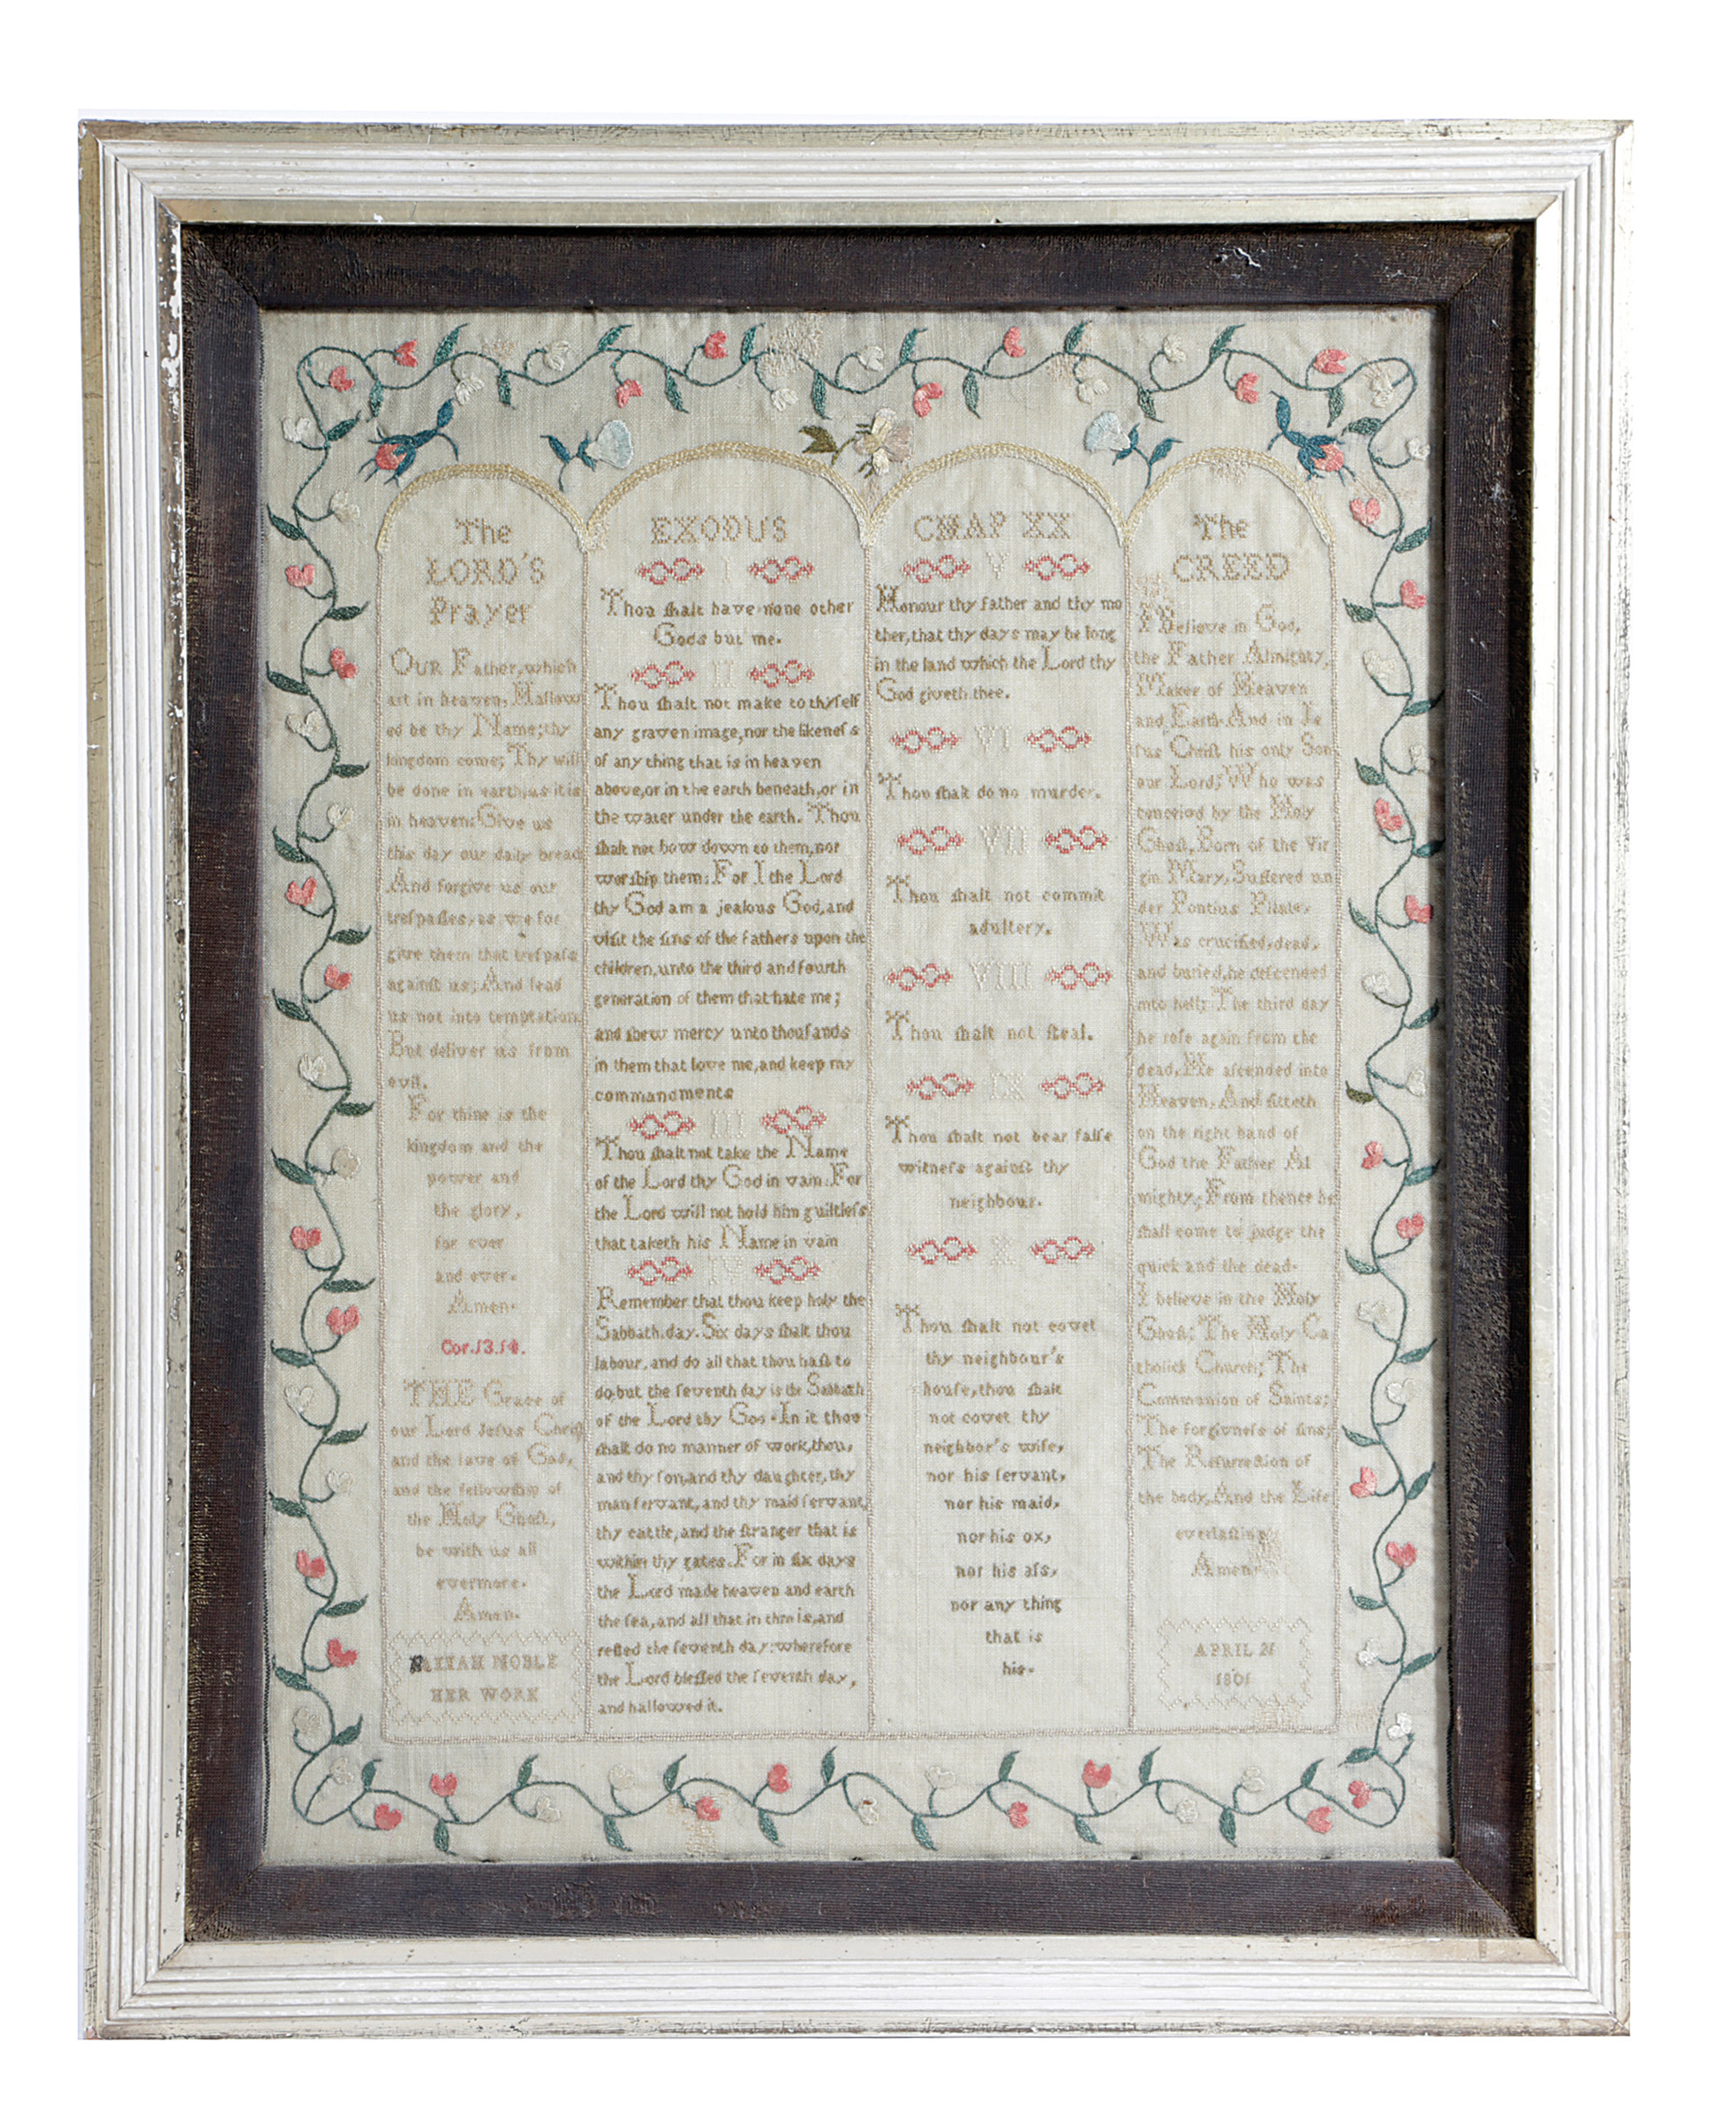 The
LORD'S
Prayer
OUR Father, which
art in heaven, Hallow
ed be thy Name; thy
kingdom come; Thy will
be done in earth, as it is
in heaven: Give us
this day our daily bread
And forgive us our
treſpaſſes, as we for
give them that treſpaſs
againſt us; And lead
us not into temptation
But deliver us from
evil.
For thine is the
kingdom and the
power and
the glory,
for ever
and ever.
Amen.
Cor.13.14.
THE Grace of
our Lord Jeſus Chriſt
and the love of God,
and the fellowſhip of
the Holy Ghoſt,
be with us all
evermore.
Amen.
NOBLE
HER WORK
EXODUS
I
Thou ſhalt have none other
Gods but me.
II
Thou ſhalt not make to thyſelf
any graven image, nor the likeneſs
of any thing that is in heaven
above, or in the earth beneath, or in
the water under the earth. Thou
ſhalt not bow down to them, nor
worſhip them: For I the Lord
thy God am a jealous God, and
viſit the ſins of the fathers upon the
children, unto the third and fourth
generation of them that hate me;
and ſhew mercy unto thouſands
in them that love me, and keep my
commandments
III
Thou ſhalt not take the Name
of the Lord thy God in vain: For
the Lord will not hold him guiltleſs
that taketh his Name in vain
IV
Remember that thou keep holy the
Sabbath.day. Six days ſhalt thou
labour, and do all that thou haſt to
do, but the ſeventh day is the Sabbath
of the Lord thy God. In it thou
ſhalt do no manner of work, thou,
and thy ſon, and thy daughter, thy
man ſervant, and thy maid ſervant,
thy cattle, and the ſtranger that is
within thy gates. For in ſix days
the Lord made heaven and earth
the ſea, and all that in them is, and
reſted the ſeventh day: wherefore
the Lord bleſſed the ſeventh day,
and hallowed it.
CHAP XX
V
Honour thy father and thy mo
ther, that thy days may be long
in the land which the Lord thy
God giveth thee.
VI
Thou ſhalt do no murder.
VII
Thou ſhalt not commit
adultery.
VIII
Thou ſhalt not ſteal.
IX
Thou ſhalt not bear falſe
witneſs againſt thy
neighbour.
X
Thou ſhalt not covet
thy neighbour's
houſe, thou ſhalt
not covet thy
neighbor's wife,
nor his ſervant,
nor his maid,
nor his ox,
nor his aſs,
nor any thing
that is
his.
The
CREED
I Believe in God,
the Father Almighty,
Maker of Heaven
and Earth. And in Je
ſus Chriſt his only Son
our Lord; Who was
conceived by the Holy
Ghoſt, Born of the Vir
gin Mary, Suffered un
der Pontius Pilate,
Was crucified, dead,
and buried, he deſcended
into hell; The third day
he roſe again from the
dead, He aſcended into
Heaven, And ſitteth
on the right hand of
God the Father Al
mighty; From thence he
ſhall come to judge the
quick and the dead.
I believe in the Holy
Ghoſt; The Holy Ca
tholick Church; The
Communion of Saints;
The forgivneſs of ſins;
The Reſurrection of
the body, And the Life
everlaſting
Amen.
APRIL 21
1801